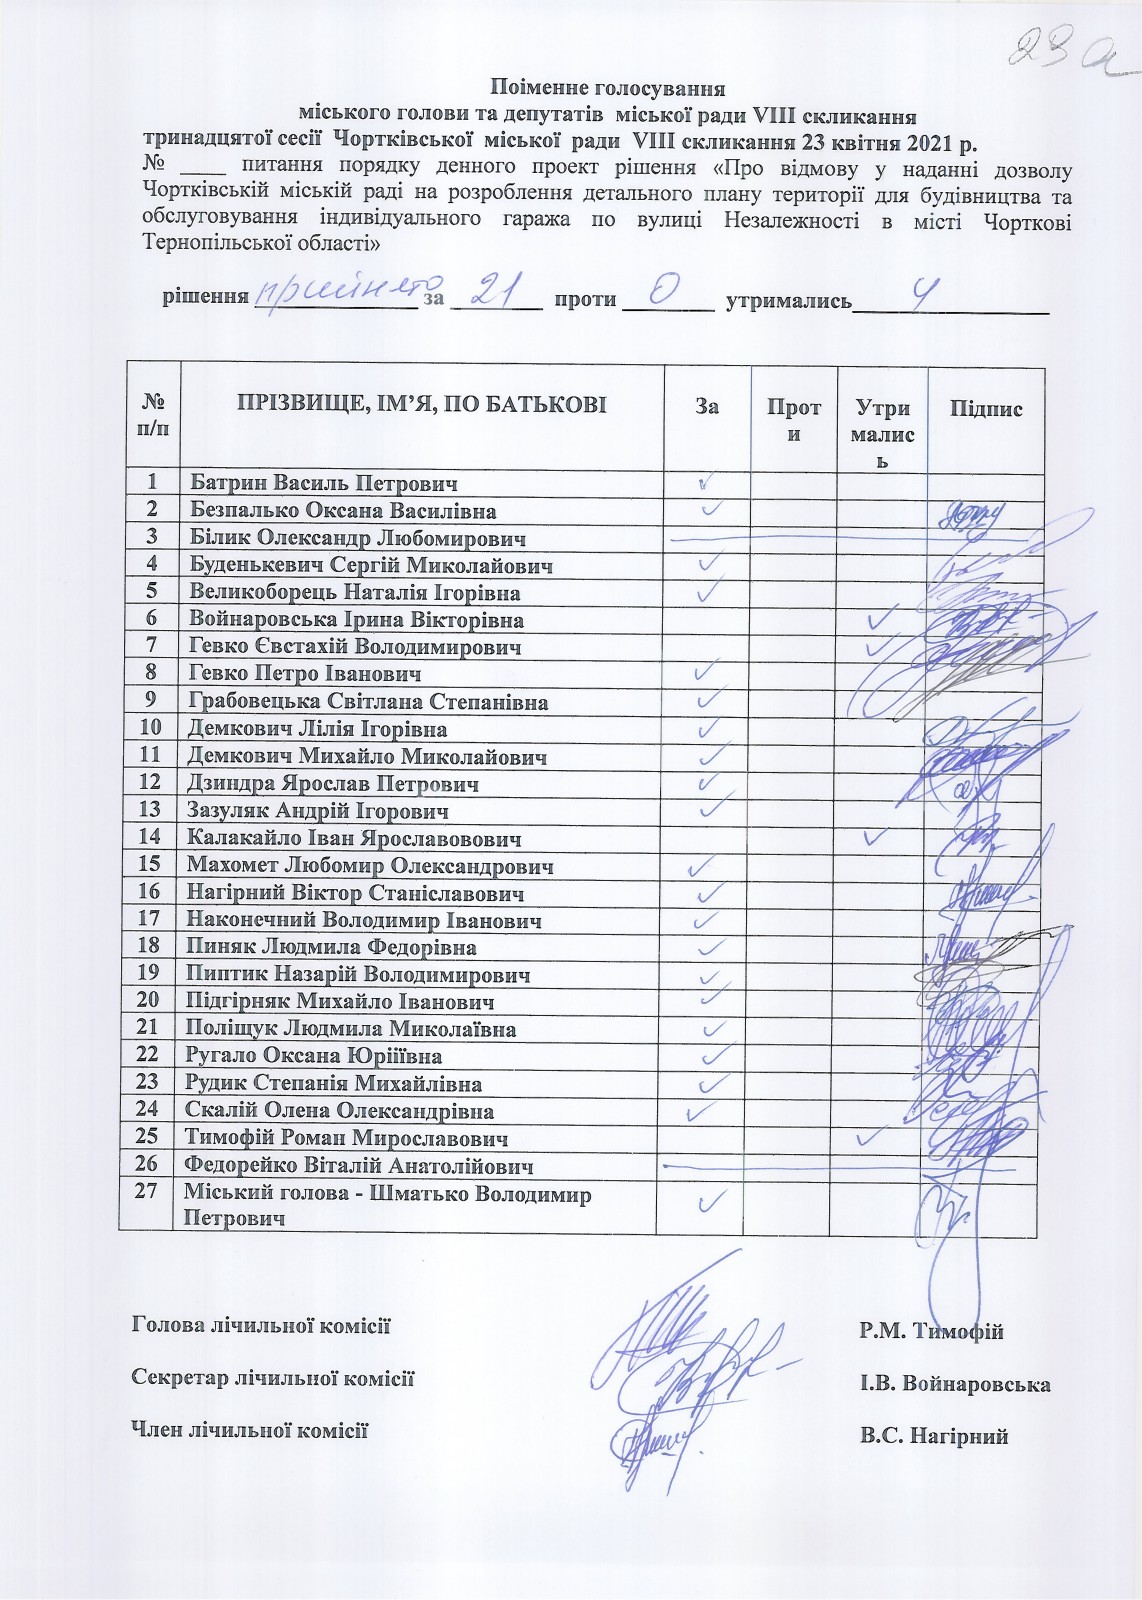 23 а
Поіменне голосування
міського голови та депутатів міської ради VIII скликання
тринадцятої сесії Чортківської міської ради VIII скликання 23 квітня 2021 р.
№ ____ питання порядку денного проект рішення «Про відмову у наданні дозволу
Чортківській міській раді на розроблення детального плану території для будівництва та
обслуговування індивідуального гаража по вулиці Незалежності в місті Чорткові
Тернопільської області»
рішення прийнято за 21 проти 0 утримались 4
№ п/п ПРІЗВИЩЕ, ІМ’Я, ПО БАТЬКОВІ За Проти Утримались Підпис
1 Батрин Василь Петрович ✓
2 Безпалько Оксана Василівна ✓
3 Білик Олександр Любомирович
4 Буденькевич Сергій Миколайович ✓
5 Великоборець Наталія Ігорівна ✓
6 Войнаровська Ірина Вікторівна ✓
7 Гевко Євстахій Володимирович ✓
8 Гевко Петро Іванович ✓
9 Грабовецька Світлана Степанівна ✓
10 Демкович Лілія Ігорівна ✓
11 Демкович Михайло Миколайович ✓
12 Дзиндра Ярослав Петрович ✓
13 Зазуляк Андрій Ігорович ✓
14 Калакайло Іван Ярославовович ✓
15 Махомет Любомир Олександрович ✓
16 Нагірний Віктор Станіславович ✓
17 Наконечний Володимир Іванович ✓
18 Пиняк Людмила Федорівна ✓
19 Пиптик Назарій Володимирович ✓
20 Підгірняк Михайло Іванович ✓
21 Поліщук Людмила Миколаївна ✓
22 Ругало Оксана Юріїївна ✓
23 Рудик Степанія Михайлівна ✓
24 Скалій Олена Олександрівна ✓
25 Тимофій Роман Мирославович ✓
26 Федорейко Віталій Анатолійович
27 Міський голова - Шматько Володимир
Петрович ✓
Голова лічильної комісії Р.М. Тимофій
Секретар лічильної комісії І.В. Войнаровська
Член лічильної комісії В.С. Нагірний